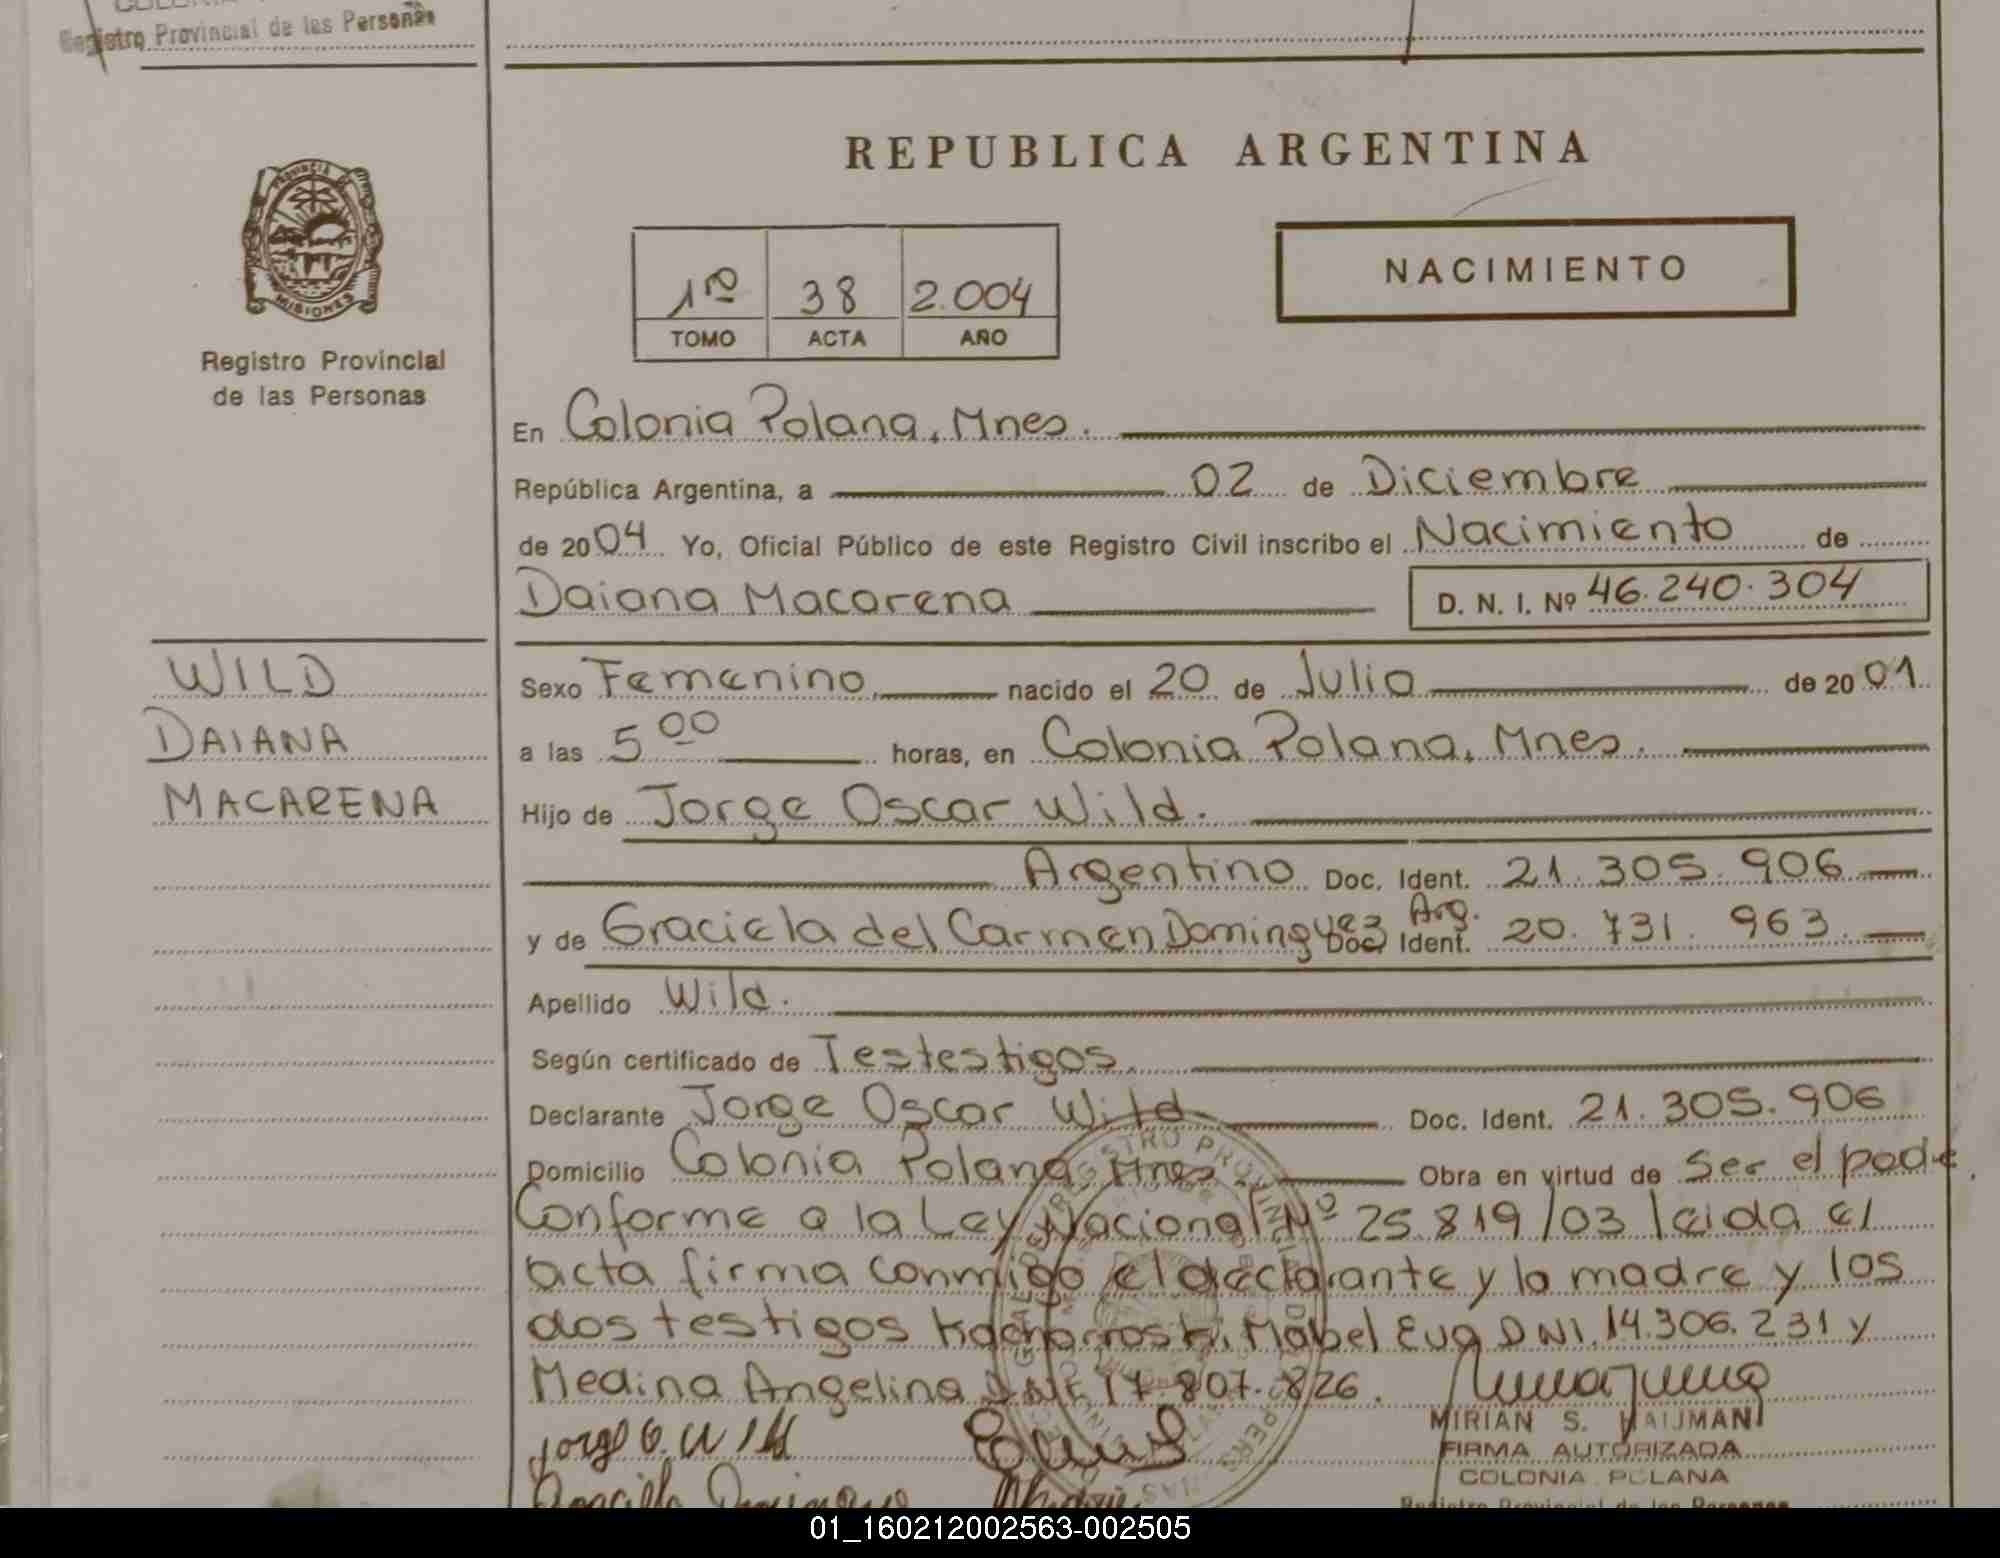 Registro Provincial de las Personas
REPUBLICA ARGENTINA
PROVINCIA DE
MISIONES
Registro Provincial
de las Personas
1ro 38 2.004
TOMO ACTA AÑO
NACIMIENTO
En Colonia Polana, Mnes.
República Argentina, a 02 de Diciembre
de 2004 Yo, Oficial Público de este Registro Civil inscribo el Nacimiento de
Daiana Macarena D. N. I. Nº 46.240.304
WILD
DAIANA
MACARENA
Sexo Femenino, nacido el 20 de Julio de 2001
a las 5 00 horas, en Colonia Polana, Mnes.
Hijo de Jorge Oscar Wild.
Argentino Doc. Ident. 21.305.906
y de Graciela del Carmen Dominguez Arg. Doc. Ident. 20.731.963
Apellido Wild.
Según certificado de Testestigos
Declarante Jorge Oscar Wild Doc. Ident. 21.305.906
Domicilio Colonia Polana Mnes. Obra en virtud de ser el padre.
Conforme a la Ley Nacional Nº 25.819/03 leida el
acta firma conmigo el declarante y la madre y los
dos testigos Mabel Eva DNI. 14.306.231 y
Medina Angelina DNI 17.807.826.
Jorge O. Wild
MIRIAN S. HAIJMAN
FIRMA AUTORIZADA
COLONIA POLANA
Registro Provincial de las Personas
01_160212002563-002505